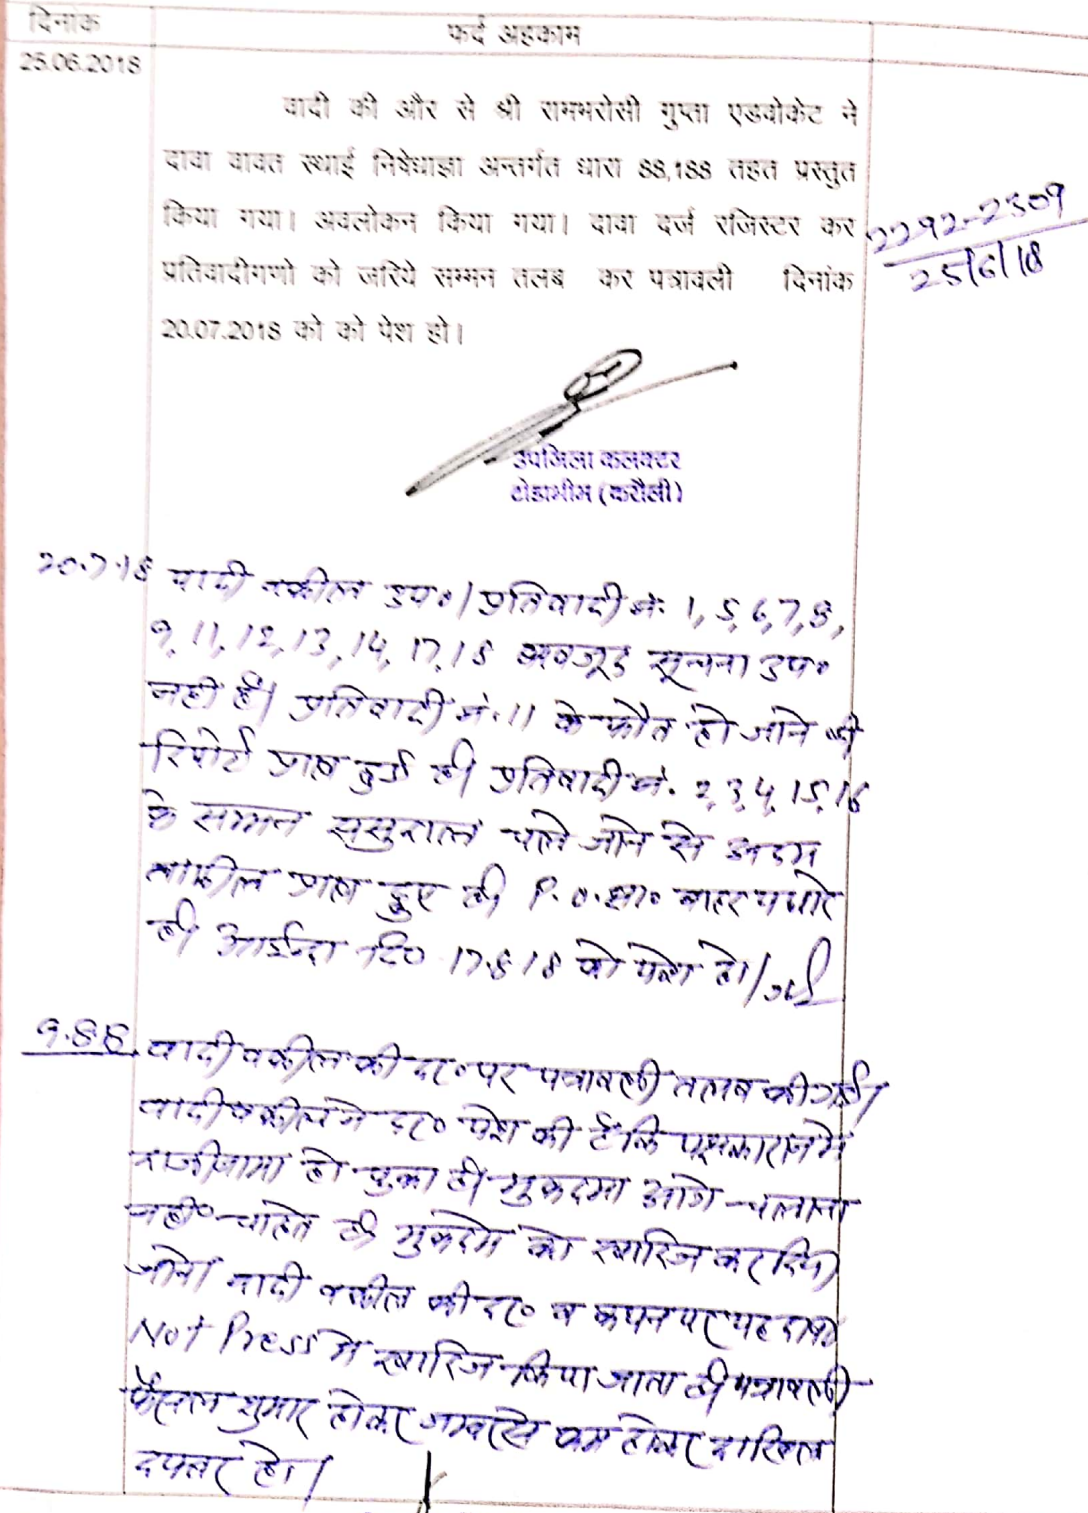 दिनांक
फर्द अहकाम
25.06.2018
वादी की और से श्री रामभरोसी गुप्ता एडवोकेट ने
दावा वावत स्थाई निषेधाज्ञा अन्तर्गत धारा 88,188 तहत प्रस्तुत
किया गया। अवलोकन किया गया। दावा दर्ज रजिस्टर कर
प्रतिवादीगणो को जरिये सम्मन तलब कर पत्रावली दिनांक
20.07.2018 को को पेश हो।
2292-2309
25/6/18
उपजिला कलक्टर
टोडाभीम (करौली)
20.7.18 वादी वकील उप०। प्रतिवादी नं. 1, 5, 6, 7, 8,
9, 11, 12, 13, 14, 17, 18 बावजूद सूचना उप०
नहीं है। प्रतिवादी नं. 11 के फौत हो जाने की
रिपोर्ट प्राप्त हुई है। प्रतिवादी नं. 2, 3, 4, 15, 16
के सम्मन ससुराल चले जाने से अदम
तामील प्राप्त हुए है। P.O. सा० बाहर पधारे
है। आईन्दा दि० 17.8.18 को पेश हो।
9.8.18 वादी वकील की द० पर पत्रावली तलब की गई।
वादी वकील ने द० पेश की है कि पक्षकारान में
राजीनामा हो चुका है। मुकदमा आगे चलाना
नहीं चाहते है। मुकदमे को खारिज कर दिया
जावे। वादी वकील की द० व कथन पर यह दावा
Not Press में खारिज किया जाता है। पत्रावली
फैसल शुमार होकर नम्बर से कम होकर दाखिल
दफ्तर हो।